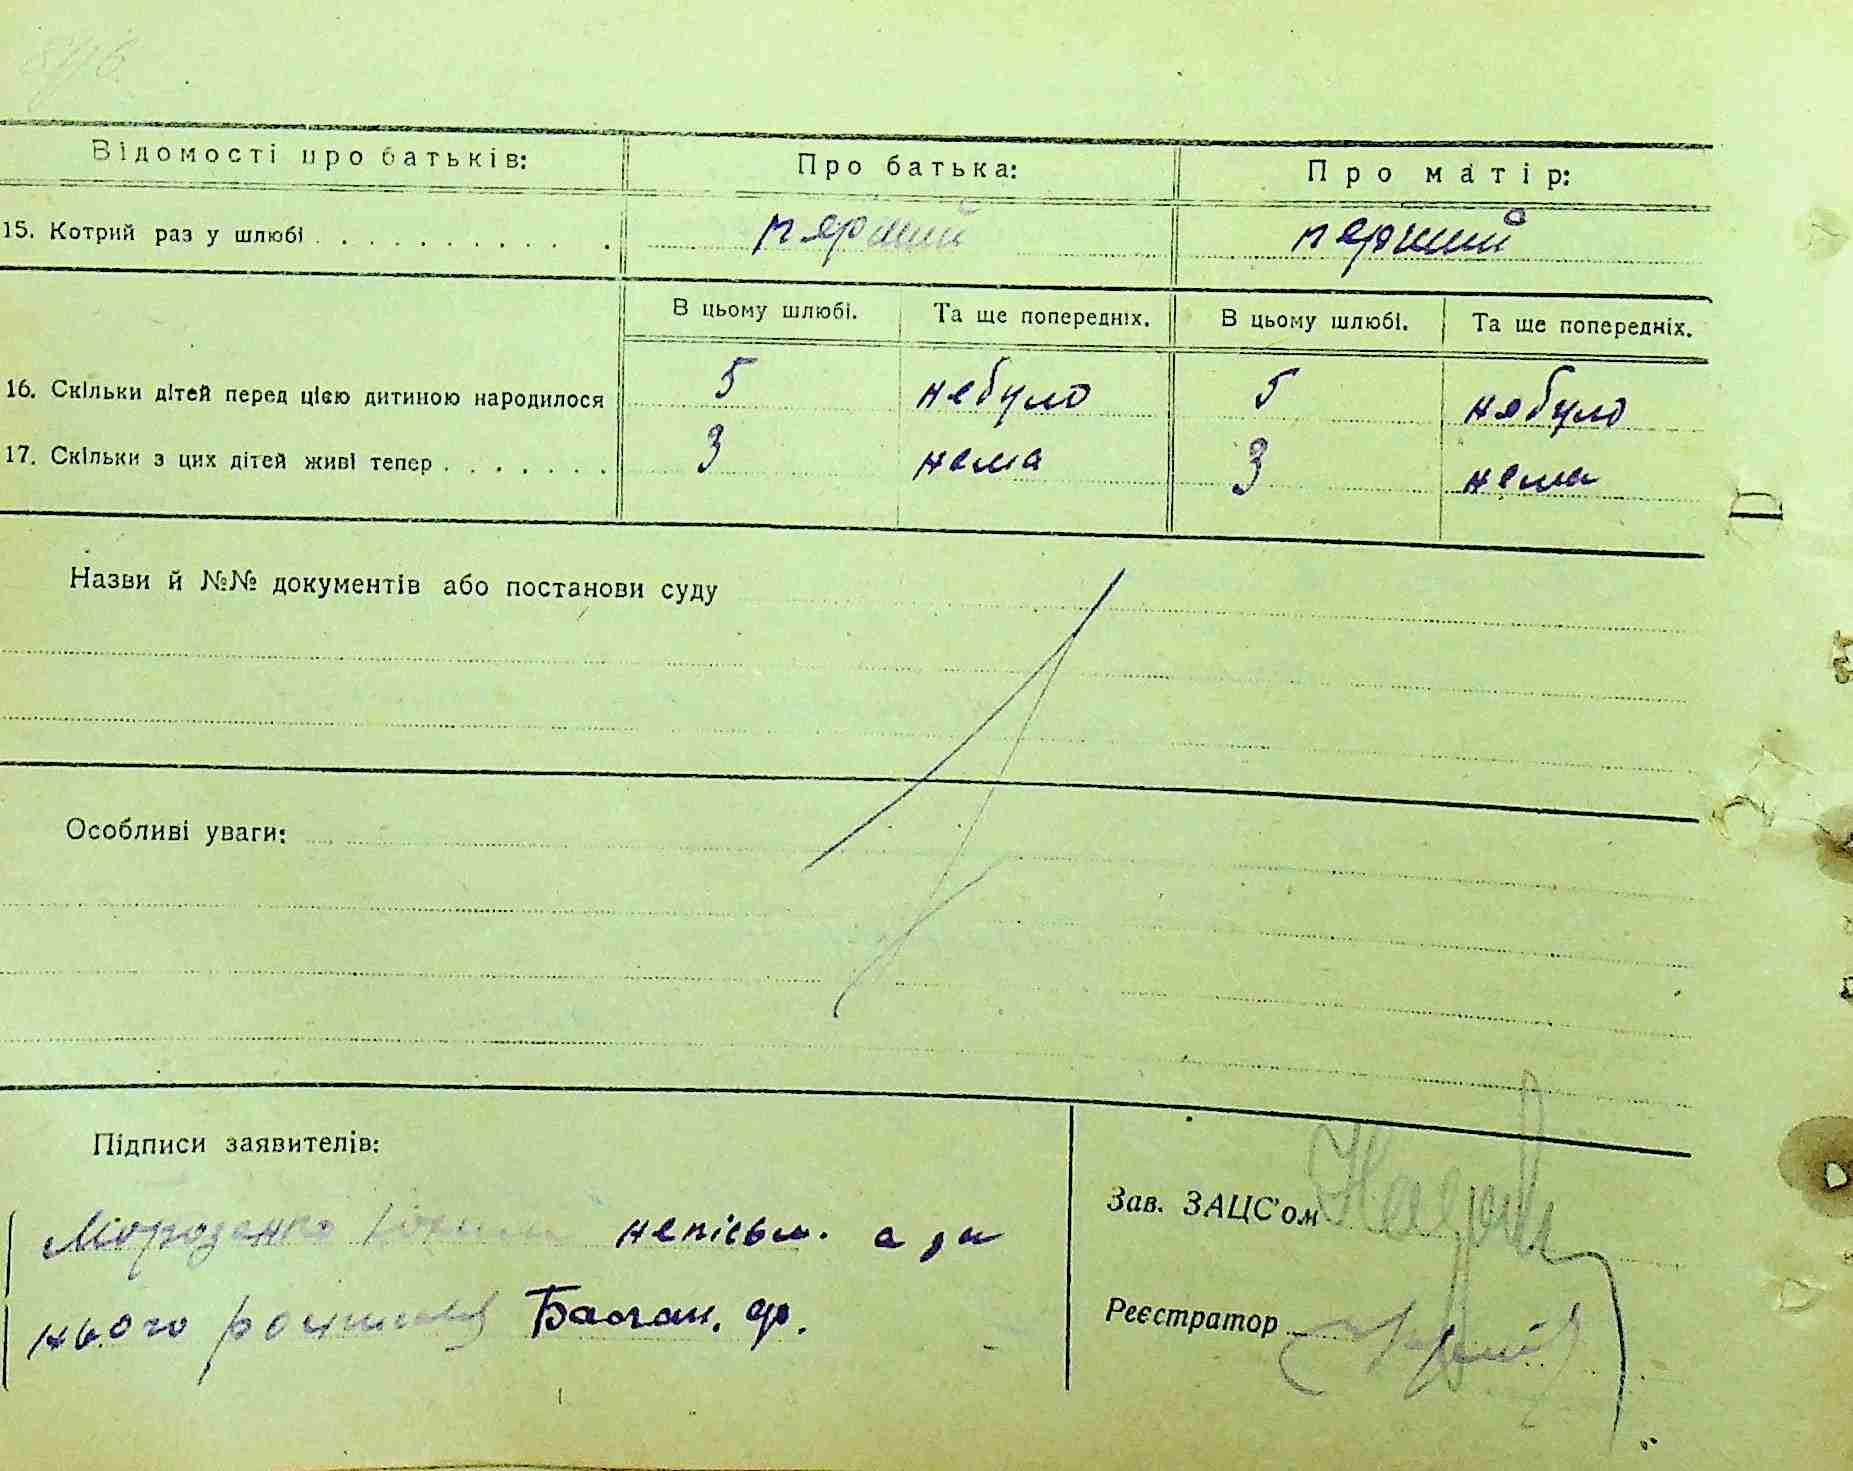 Відомості про батьків: Про батька: Про матір:
15. Котрий раз у шлюбі . . . . . . . . . . . перший перший
В цьому шлюбі. Та ще попередніх. В цьому шлюбі. Та ще попередніх.
16. Скільки дітей перед цією дитиною народилося 5 небуло 5 небуло
17. Скільки з цих дітей живі тепер . . . . . . . 3 нема 3 нема
Назви й №№ документів або постанови суду
Особливі уваги:
Підписи заявителів:
Мороженко непісьм. а за
нього
Зав. ЗАЦС'ом
Реєстратор